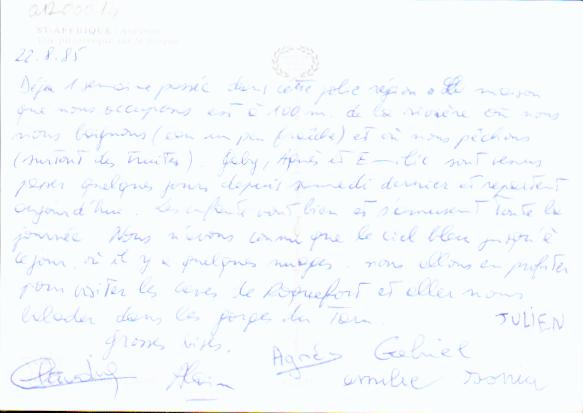 ST-AFFRIQUE
22.8.85
Déja 1 semaine passée dans cette jolie région. La maison
que nous occupons est à 100 m. de la rivière où nous
nous baignons (eau un peu fraîche) et où nous pêchons
(surtout des truites). Gaby, Agnès et Emilie sont venus
passer quelques jours depuis samedi dernier et repartent
aujourd'hui. Les enfants vont bien et s'amusent toute la
journée. Nous n'avons connu que le ciel bleu jusqu'à
ce jour, où il y a quelques nuages. nous allons en profiter
pour visiter les caves de Roquefort et aller nous
balader dans les gorges du Tarn.
JULIEN
Grosses bises.
Agnès Gabriel
Claudine Alain emilie